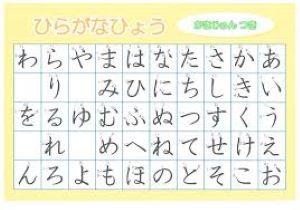 ひらがなひょう
かきじゅん つき
あいうえお
かきくけこ
さしすせそ
たちつてと
なにぬねの
はひふへほ
まみむめも
やゆよ
らりるれろ
わをん